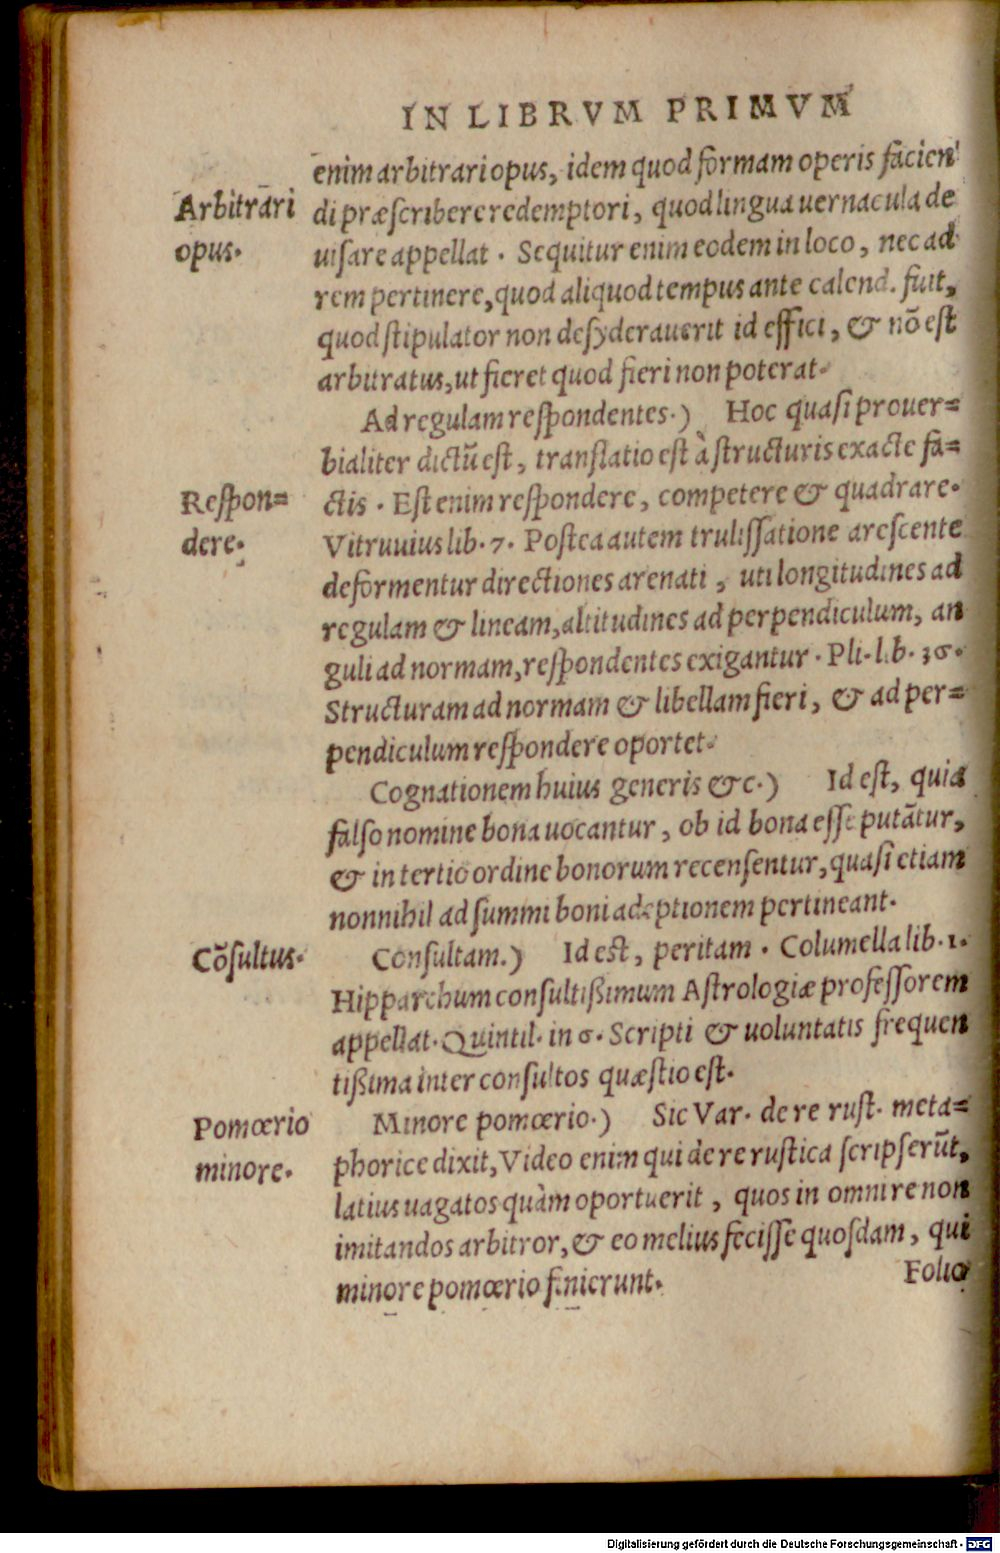 IN LIBRVM PRIMVM
enim arbitrari opus, idem quod formam operis facien
Arbitrari
di præscribere redemptori, quod lingua uernacula de
opus.
uisare appellat. Sequitur enim eodem in loco, nec ad
rem pertinere, quod aliquod tempus ante calend. fuit,
quod stipulator non desyderauerit id effici, & nō est
arbitratus, ut fieret quod fieri non poterat.
Ad regulam respondentes.) Hoc quasi prouer=
bialiter dictū est, translatio est à structuris exacte fa=
Respon=
ctis. Est enim respondere, competere & quadrare.
dere.
Vitruuius lib. 7. Postea autem trulissatione arescente
deformentur directiones arenati, uti longitudines ad
regulam & lineam, altitudines ad perpendiculum, an
guli ad normam, respondentes exigantur. Pli. lib. 36.
Structuram ad normam & libellam fieri, & ad per=
pendiculum respondere oportet.
Cognationem huius generis &c.) Id est, quia
falso nomine bona uocantur, ob id bona esse putātur,
& in tertio ordine bonorum recensentur, quasi etiam
nonnihil ad summi boni adeptionem pertineant.
Cōsultus.
Consultam.) Id est, peritam. Columella lib. 1.
Hipparchum consultißimum Astrologiæ professorem
appellat. Quintil. in 6. Scripti & uoluntatis frequen
tißima inter consultos quæstio est.
Pomœrio
Minore pomœrio.) Sic Var. de re rust. meta=
minore.
phorice dixit, Video enim qui de re rustica scripserūt,
latius uagatos quàm oportuerit, quos in omni re non
imitandos arbitror, & eo melius fecisse quosdam, qui
minore pomœrio finierunt.
Folio
Digitalisierung gefördert durch die Deutsche Forschungsgemeinschaft - DFG